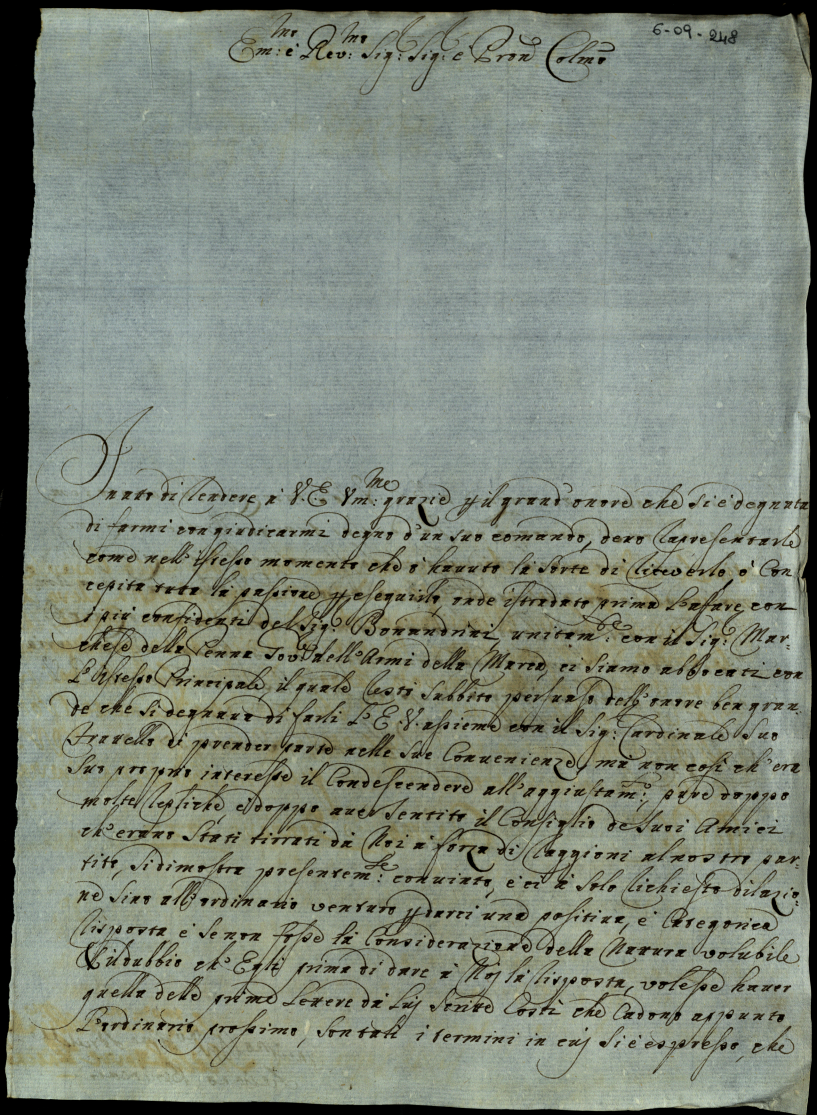 6-09-248
Em:mo e Rev:mo Sig: Sig: e Pron Colmo
In atto di rendere à V. E. Um:me grazie p il grand' onore che si è degnata
di farmi con giudicarmi degno d'un suo comando, devo rapresentarle
come nell'istesso momento che ò havuto la sorte di riceverlo, ò Con
cepita tutta la passione p eseguirlo, onde istradato prima l'affare con
i più confidenti del Sig: Bonandrini unitam:e con il Sig: Mar-
chese della Penna Gov:e dell'Armi della Marca, ci siamo abbocati con
l'istesso Principale, il quale restò subbito persuaso dell'onore ben gran-
de che si degnava di farli l'E. V. assieme con il Sig: Cardinale suo
Fratello di prender parte nelle sue Convenienze, ma non così ch'era
suo proprio interesse il Condescendere all'aggiustam:o, pure doppo
molte repliche e doppo aver sentito il Consiglio de suoi Amici
ch'erano stati tirati da Noi a forza di raggioni al nostro par-
tito, si dimostra presentem:te convinto, e ci à solo richiesto dilazio-
ne sino all'ordinario venturo p darci una positiva, e Categorica
risposta e se non fosse la Considerazione della Natura volubile
& il dubbio ch'Egli prima di dare à Noj la risposta, volesse haver
quella delle prime Lettere da Luj scritte Costì che Cadono appunto
l'ordinario prossimo, son tali i termini in cuj si è espresso, che